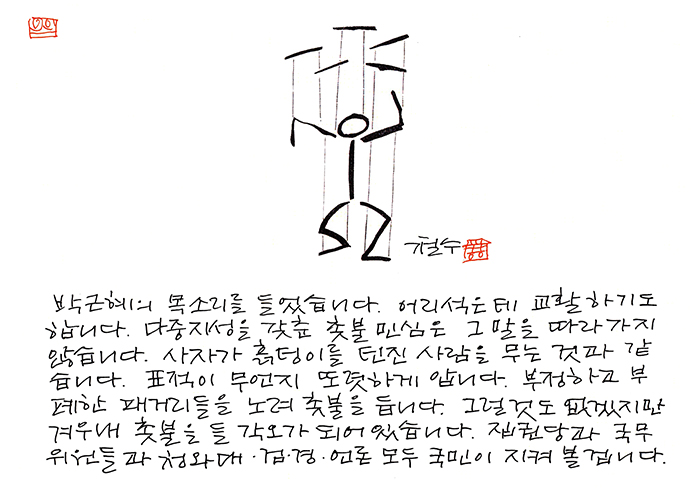 철수
박근혜의 목소리를 들었습니다. 어리석은데 교활하기도
합니다. 다중지성을 갖춘 촛불 민심은 그 말을 따라가지
않습니다. 사자가 흙덩이를 던진 사람을 무는 것과 같
습니다. 표적이 무언지 또렷하게 압니다. 부정하고 부
패한 패거리들을 노려 촛불을 듭니다. 그럴것도 없겠지만
겨우내 촛불을 들 각오가 되어있습니다. 집권당과 국무
위원들과 청와대·검·경·언론 모두 국민이 지켜 볼 겁니다.